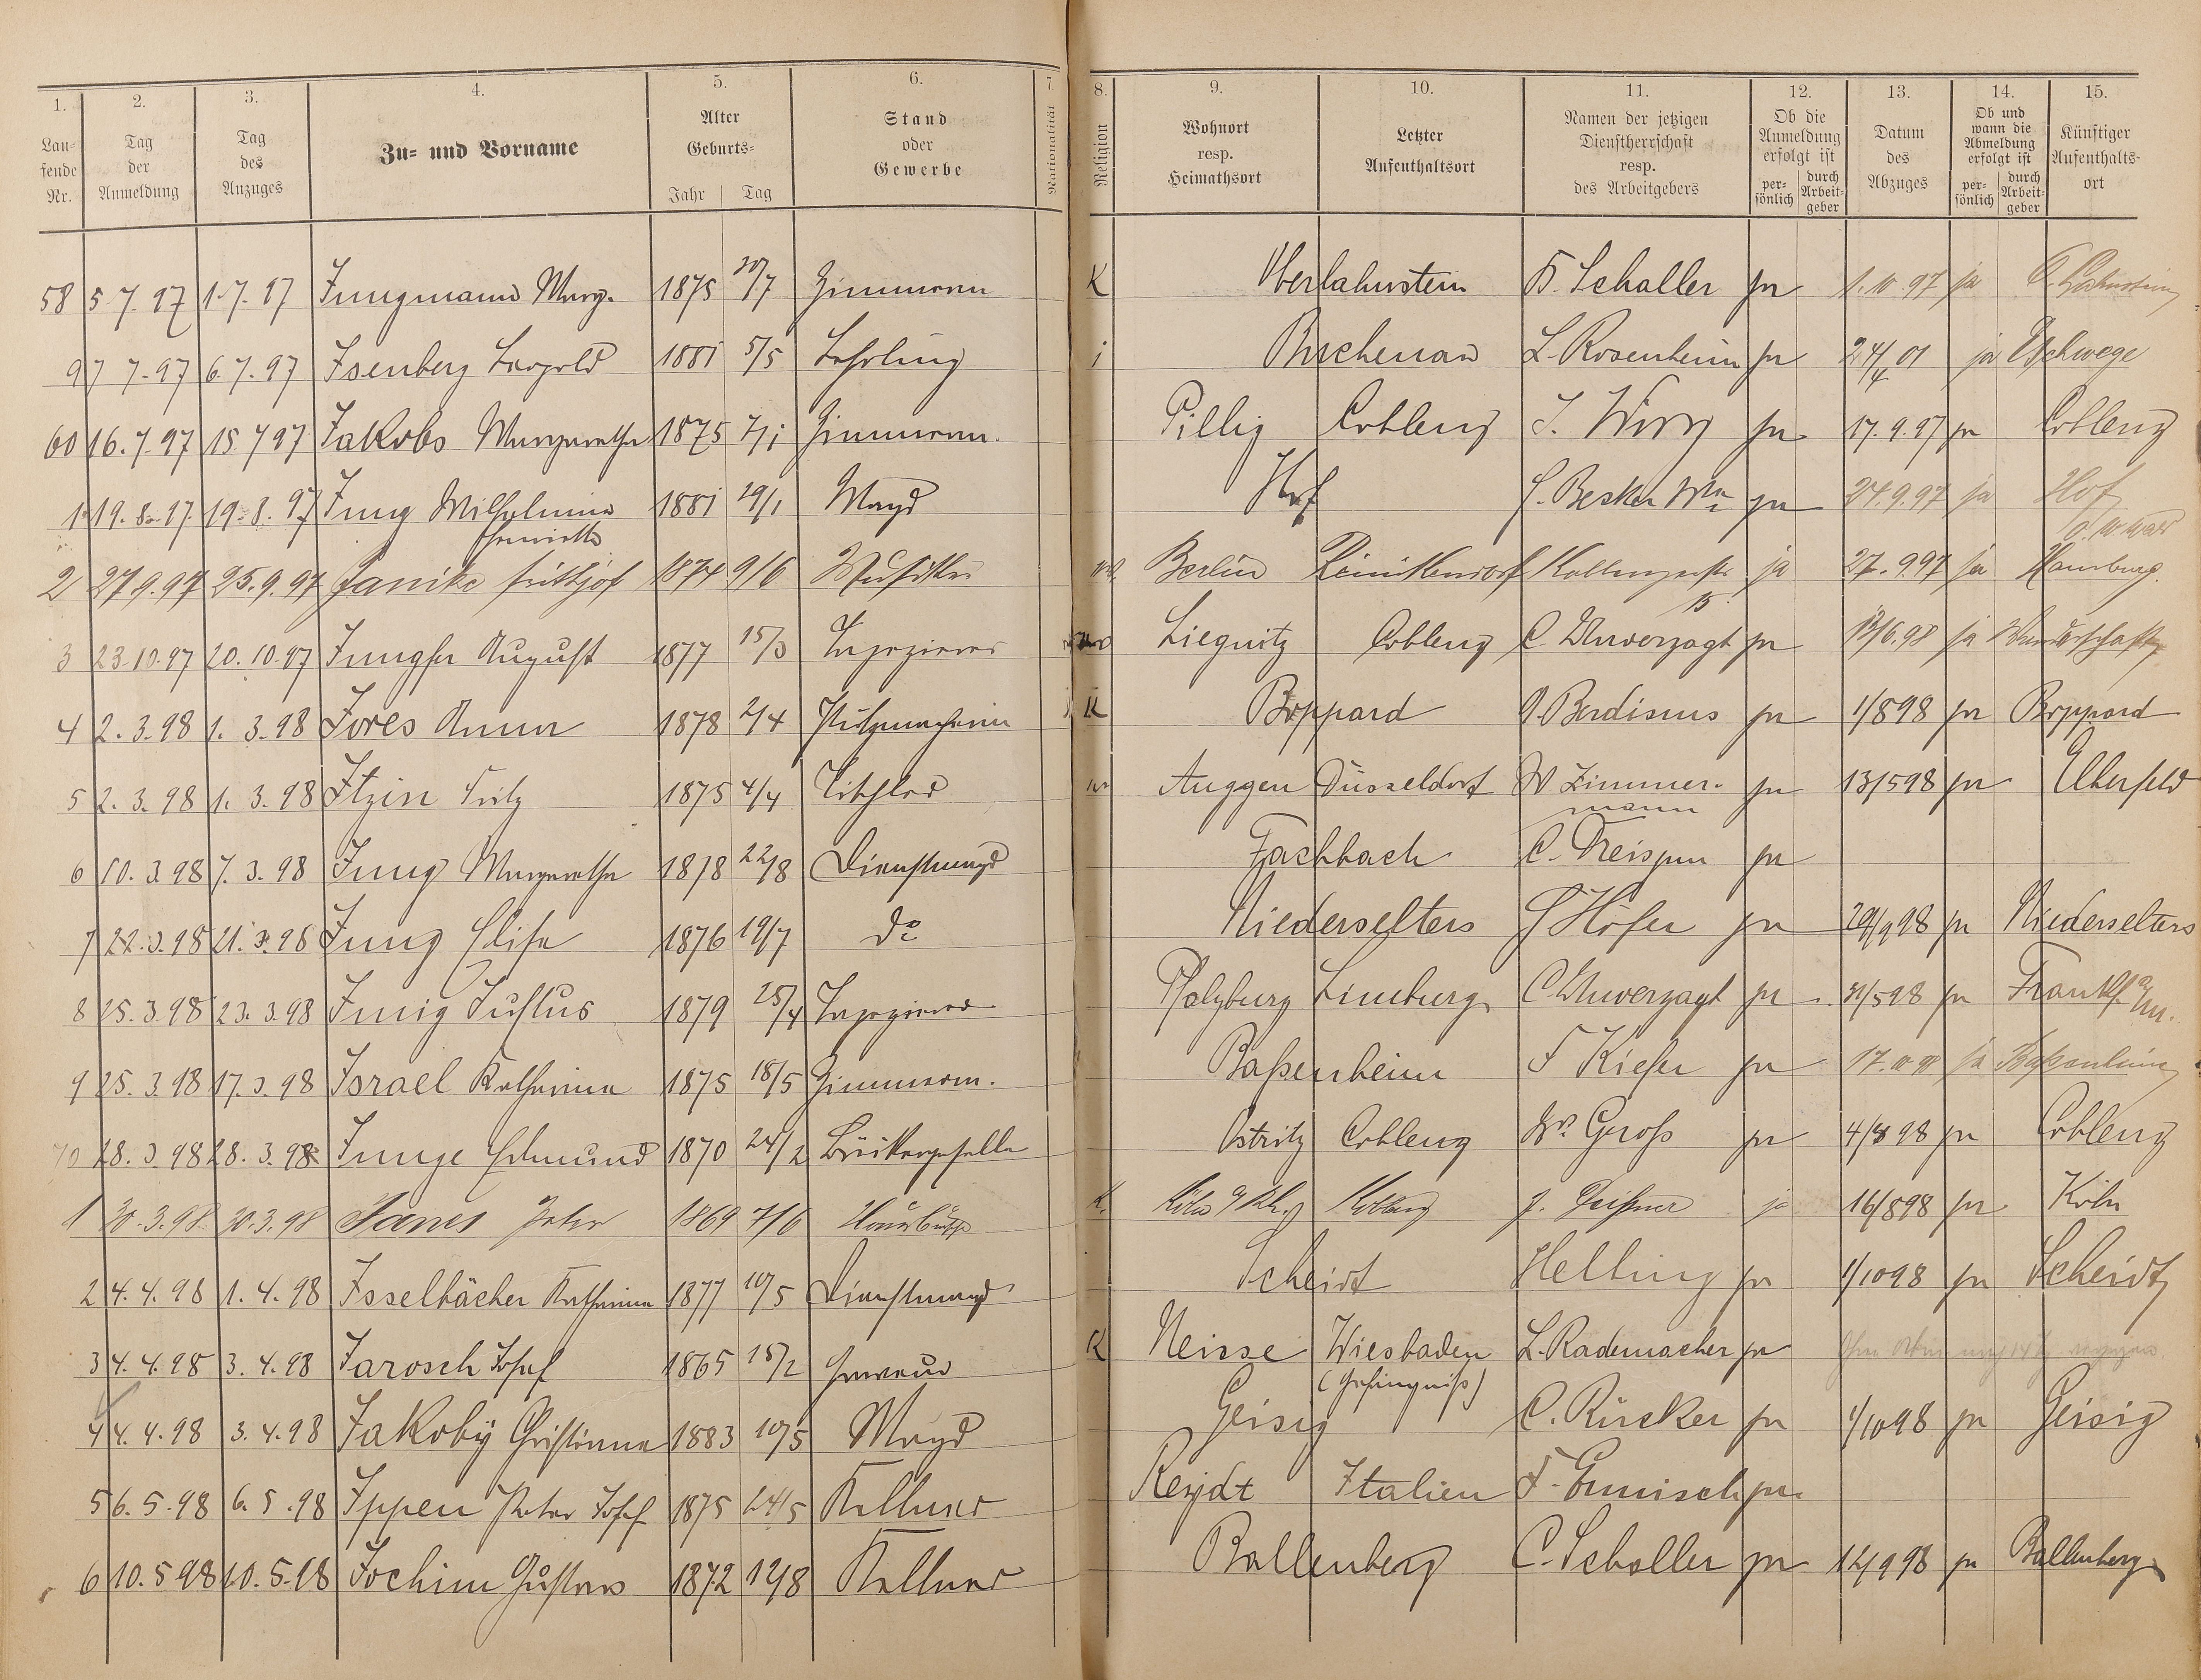 1. 2. 3. 4. 5. 6. 7. 8. 9. 10. 11. 12. 13. 14. 15.
Laufende Nr. Tag der Anmeldung Tag des Anzuges Zu- und Vorname Alter Geburts- Jahr Tag Stand oder Gewerbe Nationalität Religion Wohnort resp. Heimathsort Letzter Aufenthaltsort Namen der jetzigen Dienstherrschaft resp. des Arbeitgebers Ob die Anmeldung erfolgt ist persönlich durch Arbeitgeber Datum des Abzuges Ob und wann die Abmeldung erfolgt ist persönlich durch Arbeitgeber Künftiger Aufenthaltsort
58 5 7. 97 1. 7. 97 Jungmann Marg. 1875 30/7 Zimmerm K Oberlahnstein F. Schaller ja 1. 10 97 ja O. Lahnstein
9 7 7. 97 6. 7. 97 Isenberg Leopold 1881 5/5 Lehrling i Buchenau L. Rosenheim ja 24/4 01 ja Eschwege
60 16. 7. 97 15 7 97 Jakobs Margaretha 1875 7/1 Zimmerm. Pillig Coblenz J. Wirz ja 17. 9. 97 ja Coblenz
1 19. 8. 97. 19. 8. 97 Jung Wilhelmina Henriette 1881 29/1 Magd Hof H. Becker Ww ja 27. 9. 97 ja Hof
2 27 9. 97 25. 9. 97 Janike Frithjof 1874 9/6 Musiker Berlin Reinikendorf 15 ja 27. 9 97 ja Hamburg.
3 23. 10. 97 20. 10. 97 August 1877 15/3 Tapezierer Liegnitz Coblenz C. Unverzagt ja 13/6. 98 ja Wanderschaft
4 2. 3. 98 1. 3. 98 Jores Anna 1878 2/4 Putzmacherin K Boppard J. Berdismus ja 1/8 98 ja Boppard
5 2. 3. 98 1. 3. 98 Itzin Fritz 1875 4/4 Tischler Auggen Düsseldorf W Zimmermann ja 13/5 98 ja Elberfeld
6 10. 3. 98 7. 3. 98 Jung Margaretha 1878 22/8 Dienstmagd Fachbach C. Dreispen ja
7 22. 3. 98 21. 3. 98 Jung Elise 1876 19/7 do Niederselters H Höfer ja 29/9 98 ja Niederselters
8 25. 3. 98 23. 3. 98 Junig Justus 1879 25/4 Tapezierer Pfalzburg Limburg C Unverzagt ja 31/5 98 ja Frankf. a/M.
9 25. 3. 98 17. 3. 98 Israel Katharina 1875 18/5 Zimmerm. Baßenheim F Kiefer ja 17. 10 98 ja Baßenheim
70 28. 3. 98 28. 3. 98 Junge Edmund 1870 24/2 Bäckergeselle Ostritz Coblenz Gross ja 4/8 98 ja Coblenz
1 30. 3. 98. 30. 3. 98 Janes Peter 1869 7/6 Hausbursche K. Köln a/Rh. Koblenz J. ja 16/8 98 ja Köln
2 4. 4. 98 1. 4. 98 Isselbächer Katharina 1877 10/5 Dienstmagd Scheidt Helling ja 1/10 98 ja Scheidt
3 4. 4. 98 3. 4. 98 Jarosch Josef 1865 15/2 K Neisse Wiesbaden (Gefängniß) L. Rademacher ja
4 4. 4. 98 3. 4. 98 Jakoby Christiana 1883 10/5 Magd Geisig C. Rücker ja 1/10 98 ja Geisig
5 6. 5. 98 6. 5. 98 Ippen Peter Josef 1875 24/5 Kellner Reydt Italien F. Ermisch ja
6 10. 5 98 10. 5. 98 Jochim Gustav 1872 12/8 Kellner Ballenberg C. Schaller ja 12/9 98 ja Ballenberg